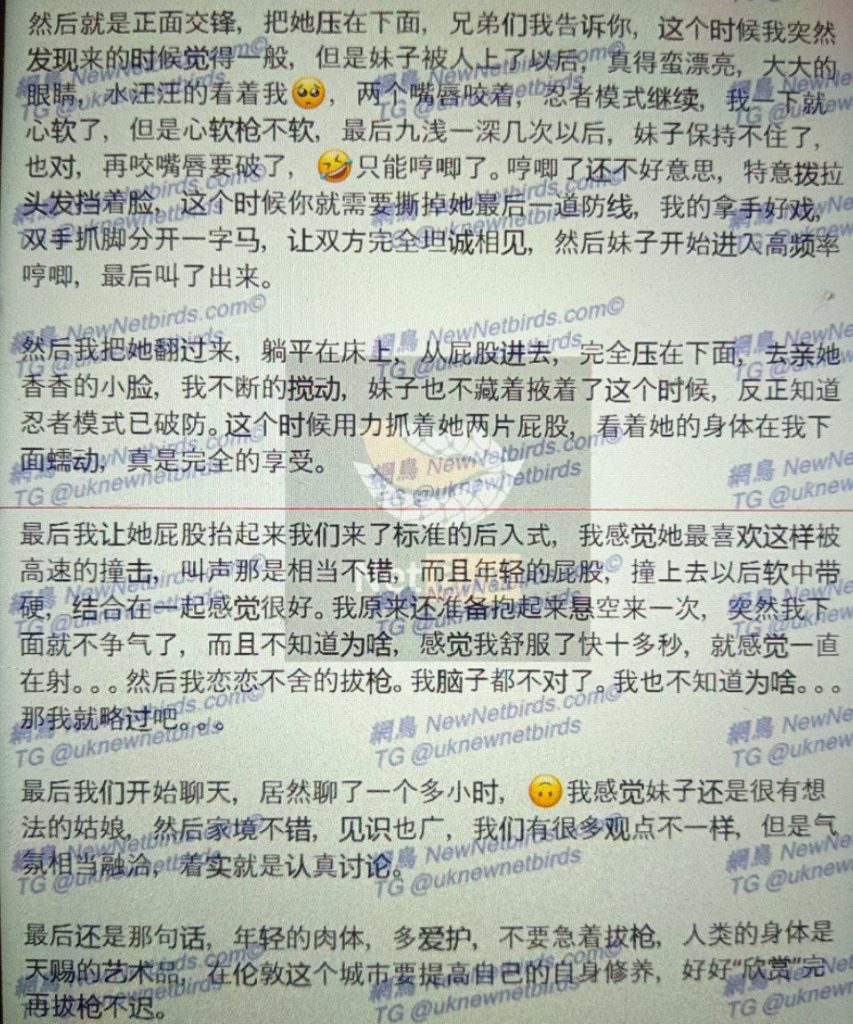 然后就是正面交锋，把她压在下面，兄弟们我告诉你，这个时候我突然
发现来的时候觉得一般，但是妹子被人上了以后，真得蛮漂亮，大大的
眼睛，水汪汪的看着我🥺，两个嘴唇咬着，忍者模式继续，我一下就
心软了，但是心软枪不软，最后九浅一深几次以后，妹子保持不住了，
也对，再咬嘴唇要破了，🤣只能哼唧了。哼唧了还不好意思，特意拨拉
头发挡着脸，这个时候你就需要撕掉她最后一道防线，我的拿手好戏，
双手抓脚分开一字马，让双方完全坦诚相见，然后妹子开始进入高频率
哼唧，最后叫了出来。
網鳥 NewNetbirds.com©
TG @uknewnetbirds
然后我把她翻过来，躺平在床上，从屁股进去，完全压在下面，去亲她
香香的小脸，我不断的搅动，妹子也不藏着掖着了这个时候，反正知道
忍者模式已破防。这个时候用力抓着她两片屁股，看着她的身体在我下
面蠕动，真是完全的享受。
網鳥 NewNetbirds.com©
TG @uknewnetbirds
最后我让她屁股抬起来我们来了标准的后入式，我感觉她最喜欢这样被
高速的撞击，叫声那是相当不错，而且年轻的屁股，撞上去以后软中带
硬，结合在一起感觉很好。我原来还准备抱起来悬空来一次，突然我下
面就不争气了，而且不知道为啥，感觉我舒服了快十多秒，就感觉一直
在射。。。然后我恋恋不舍的拔枪。我脑子都不对了。我也不知道为啥。。。
那我就略过吧。。。
網鳥 NewNetbirds.com©
TG @uknewnetbirds
最后我们开始聊天，居然聊了一个多小时，🙃我感觉妹子还是很有想
法的姑娘，然后家境不错，见识也广，我们有很多观点不一样，但是气
氛相当融洽，着实就是认真讨论。
網鳥 NewNetbirds.com©
TG @uknewnetbirds
最后还是那句话，年轻的肉体，多爱护，不要急着拔枪，人类的身体是
天赐的艺术品，在伦敦这个城市要提高自己的自身修养，好好“欣赏”完
再拔枪不迟。